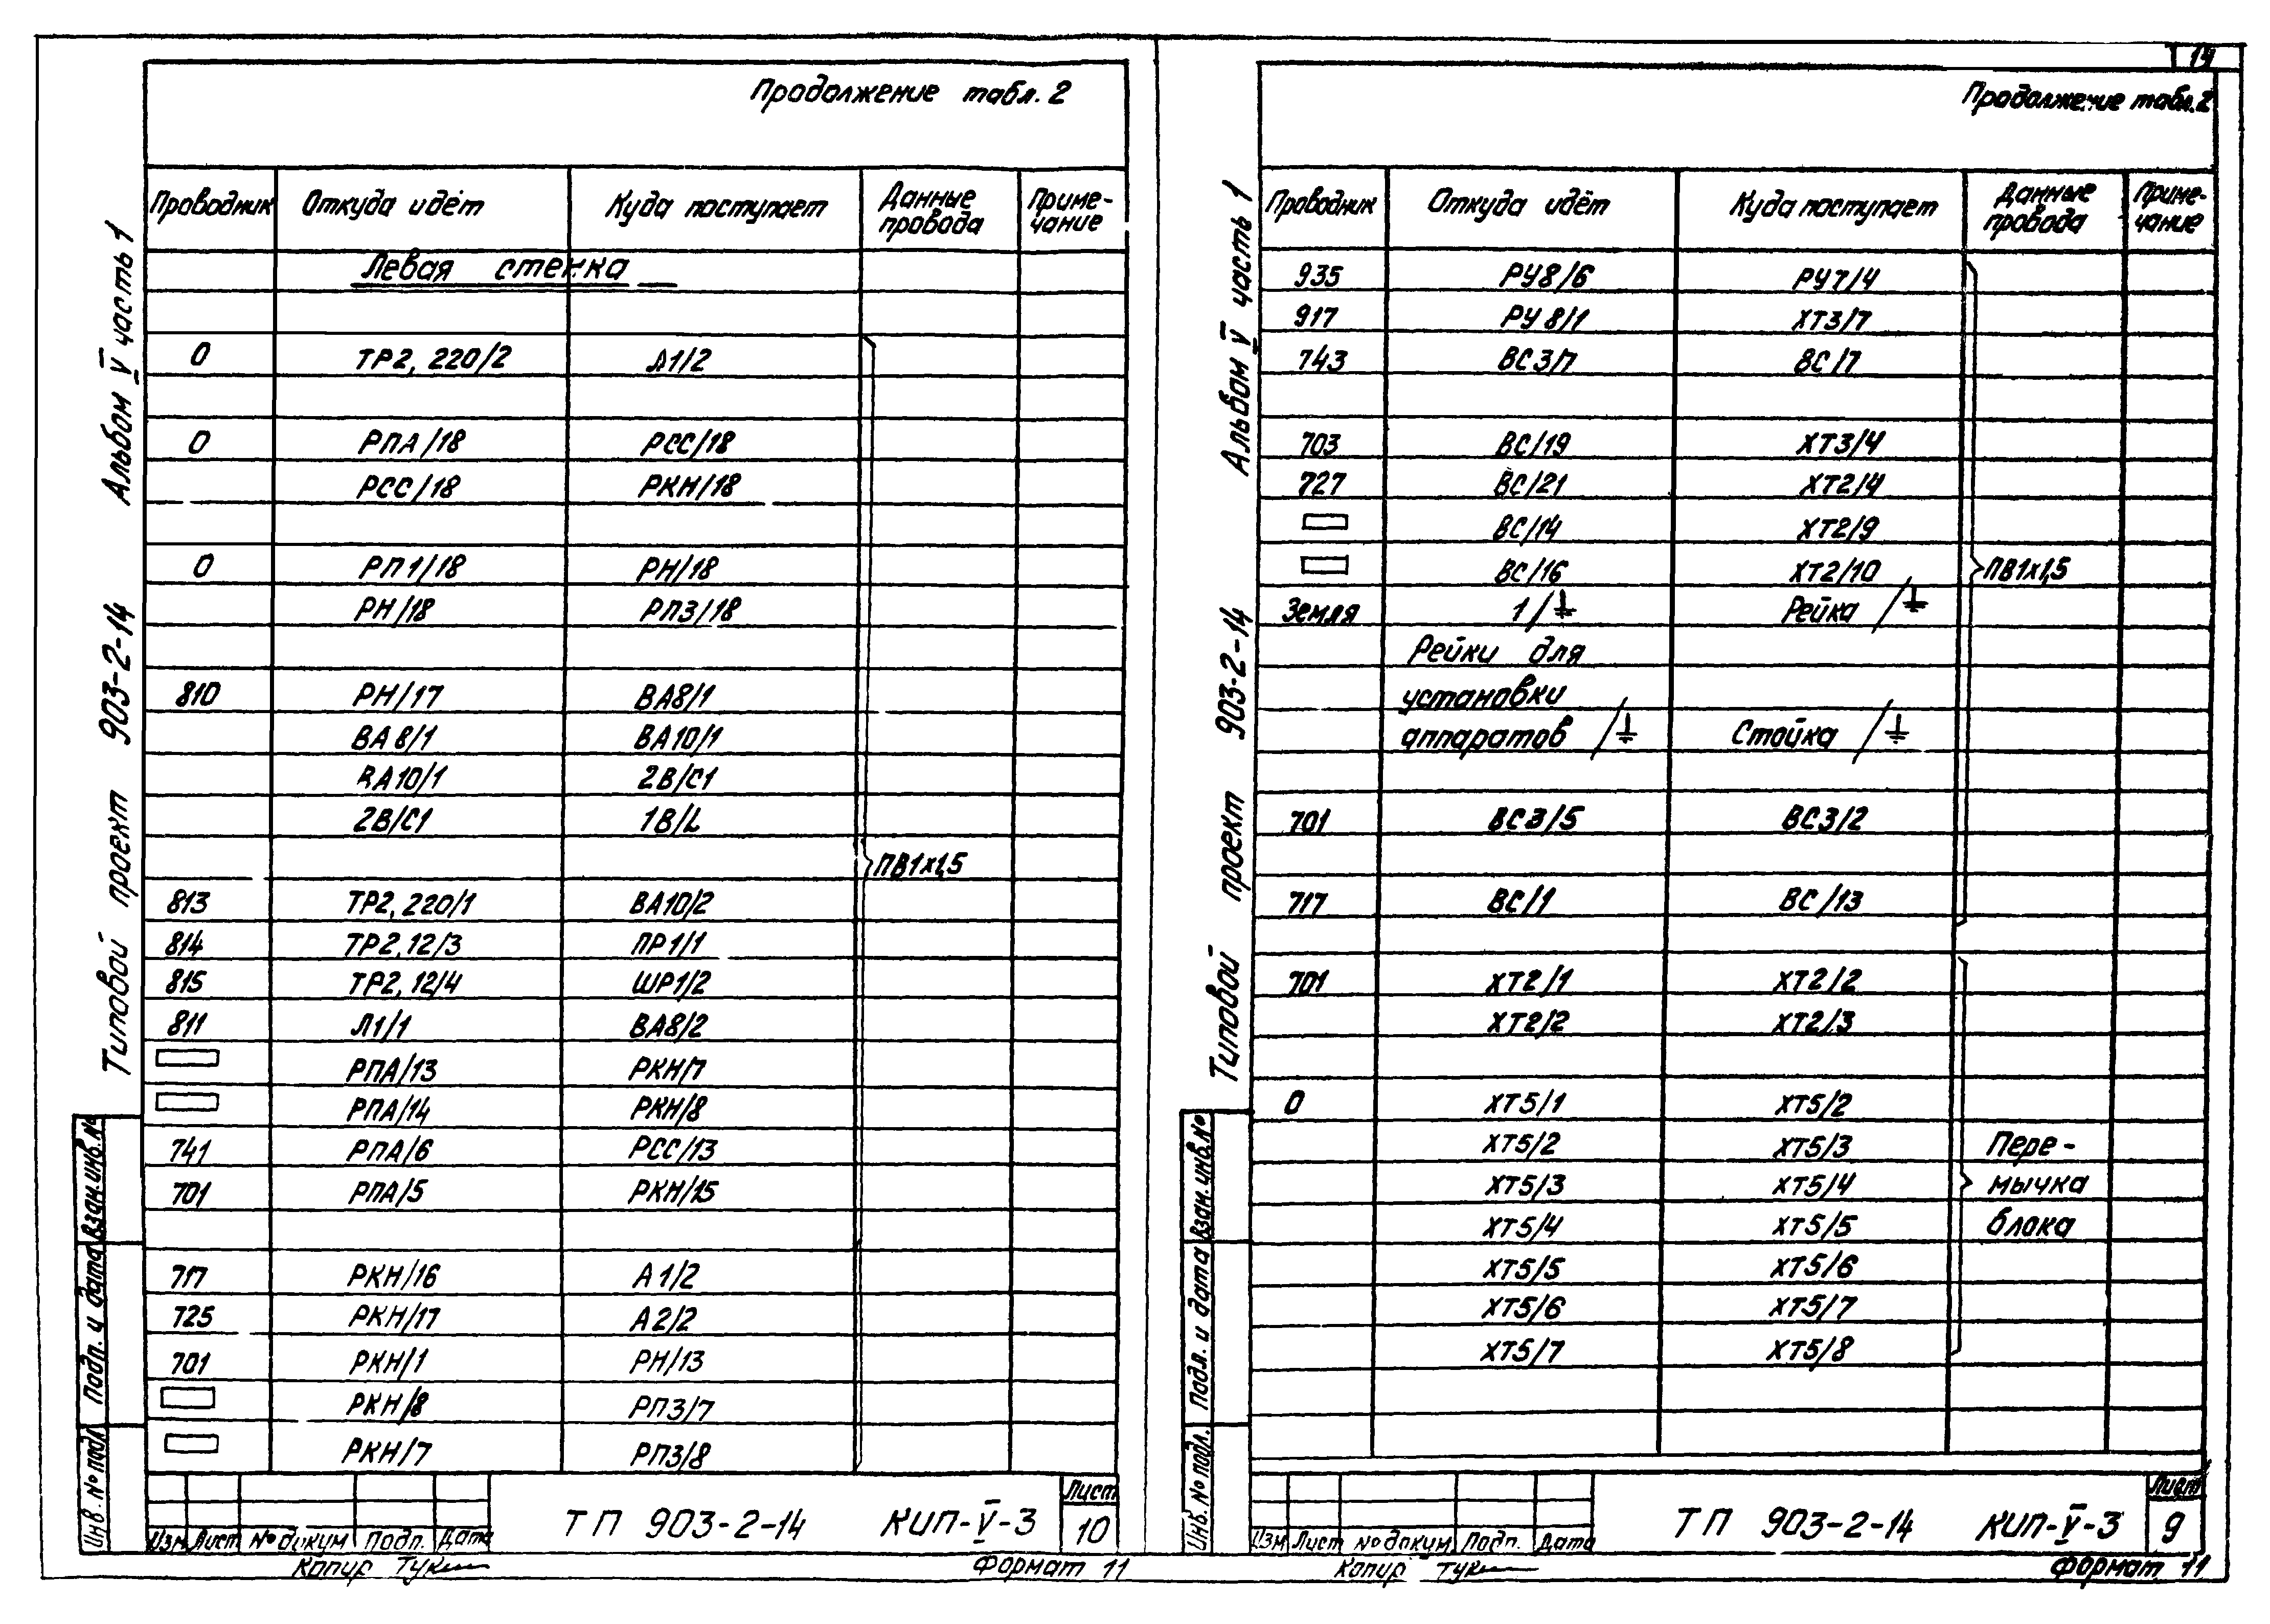 Продолжение табл. 2
Проводник Откуда идёт Куда поступает Данные провода Приме-чание
Левая стенка
0 ТР2, 220/2 Л1/2
0 РПА/18 РСС/18
РСС/18 РКН/18
0 РП1/18 РН/18
РН/18 РП3/18
810 РН/17 ВА8/1
ВА8/1 ВА10/1
ВА10/1 2В/С1
2В/С1 1В/L
ПВ1х1,5
813 ТР2, 220/1 ВА10/2
814 ТР2, 12/3 ПР1/1
815 ТР2, 12/4 ШР1/2
811 Л1/1 ВА8/2
РПА/13 РКН/7
РПА/14 РКН/8
741 РПА/6 РСС/13
701 РПА/5 РКН/15
717 РКН/16 А1/2
725 РКН/17 А2/2
701 РКН/1 РН/13
РКН/8 РП3/7
РКН/7 РП3/8
Типовой проект 903-2-14 Альбом V часть 1
Взам.инв.№
Подп. и дата
Инв. № подл
Изм Лист № докум Подп. Дата
ТП 903-2-14 КИП-V-3
Лист
10
Копир
Формат 11
14
Продолжение табл. 2
Проводник Откуда идёт Куда поступает Данные провода Приме-чание
935 РУ8/6 РУ7/4
917 РУ8/1 ХТ3/7
743 ВС3/7 ВС/7
703 ВС/19 ХТ3/4
727 ВС/21 ХТ2/4
ВС/14 ХТ2/9
ВС/16 ХТ2/10 ПВ1х1,5
Земля 1/⏚ Рейка /⏚
Рейки для
установки
аппаратов /⏚ Стойка /⏚
701 ВС3/5 ВС3/2
717 ВС/1 ВС/13
701 ХТ2/1 ХТ2/2
ХТ2/2 ХТ2/3
0 ХТ5/1 ХТ5/2
ХТ5/2 ХТ5/3 Пере-
ХТ5/3 ХТ5/4 мычка
ХТ5/4 ХТ5/5 блока
ХТ5/5 ХТ5/6
ХТ5/6 ХТ5/7
ХТ5/7 ХТ5/8
Типовой проект 903-2-14 Альбом V часть 1
Взам.инв.№
Подп. и дата
Инв. № подл.
Изм Лист № докум. Подп. Дата
ТП 903-2-14 КИП-V-3
Лист
9
Копир
Формат 11